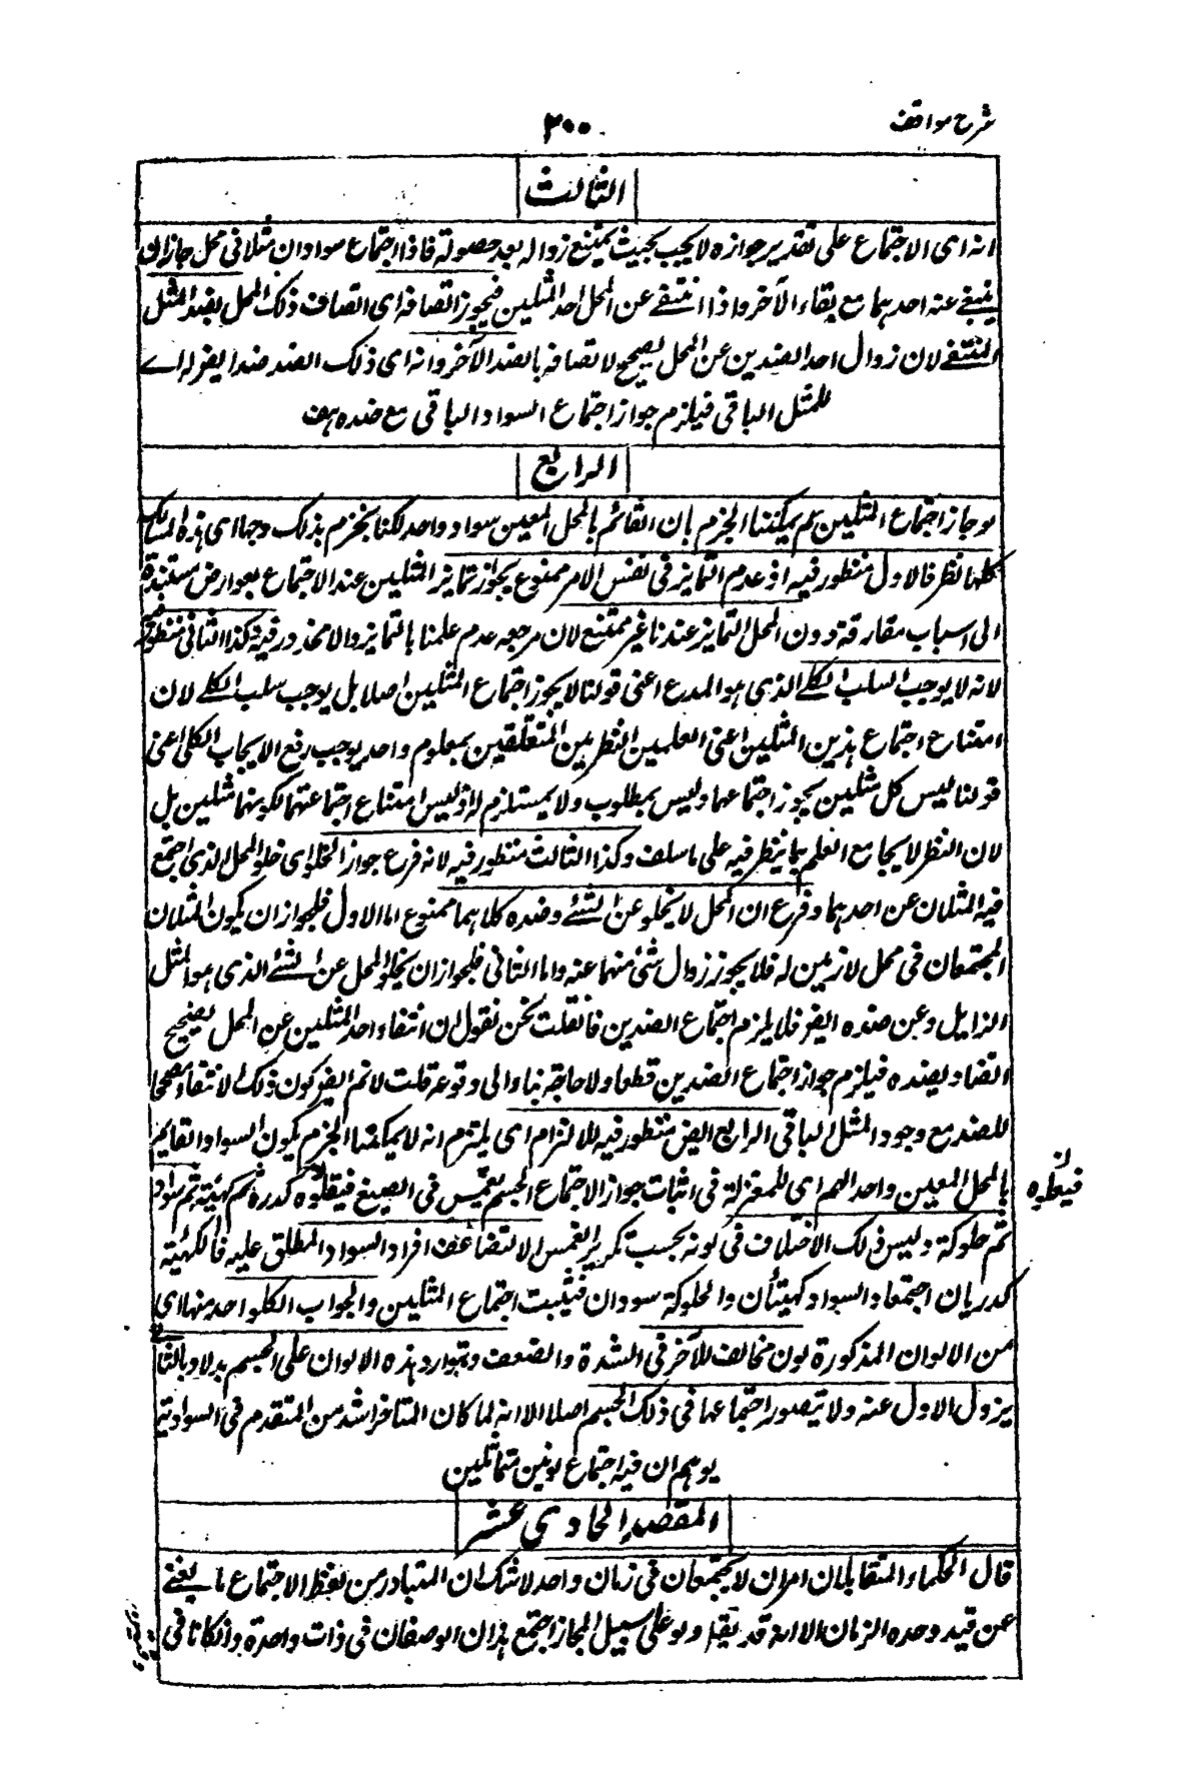 شرح مواقف
٣٠٠
الثالث
انه اى الاجتماع على تقدير جوازه لا يجب بحيث يمتنع زواله بعد حصوله فاذا اجتماع سوادان مثلا فى محل جاز ان
ينتفى عنه احدهما مع بقاء الآخر واذا انتفى عن المحل احد المثلين فيجوز اتصافه اى اتصاف ذلك المحل بضد المثل
المنتفى لان زوال احد الضدين عن المحل يصحح لاتصافه بالضد الآخر وانه اى ذلك الضد ضد ايضر له اے
للمثل الباقى فيلزم جواز اجتماع السواد الباقى مع ضده هف
الرابع
لو جاز اجتماع المثلين لم يمكننا الجزم بان القائم بالمحل المعين سواد واحد لكنا نجزم بذلك وجها اى هذه المسالك
كلها نظر فالاول منظور فيه اذ عدم التمايز فى نفس الامر ممنوع بجواز تمايز المثلين عند الاجتماع بعوارض مستندة
الى اسباب مفارقة دون المحل التمايز عندنا غير ممتنع لان مرجعه عدم علمنا بالتمايز والامحذور فيه وكذا الثانى منظور فيه
لانه لا يوجب السلب الكلے الذى هو المدعى اعنى قولنا لا يجوز اجتماع المثلين اصلا بل يوجب سلب الكلے لان
امتناع اجتماع هذين المثلين اعنى العلمين النظريين المتعلقين بمعلوم واحد يوجب رفع الايجاب الكلى اعنى
قولنا ليس كل مثلين يجوز اجتماعهما وليس بمطلوب ولا يستلزم له اذ ليس امتناع اجتماعهما لكونهما مثلين بل
لان النظر لا يجامع العلم بما ينظر فيه على ما سلف وكذا الثالث منظور فيه لانه فرع جواز الخلو اى خلو المحل الذى اجتمع
فيه المثلان عن احدهما وفرع ان المحل لا يخلو عن الشئ وضده كلاهما ممنوع اما الاول فلجواز ان يكون المثلان
المجتمعان فى محل لازمين له فلا يجوز زوال شئ منهما عنه واما الثانى فلجواز ان يخلو المحل عن الشئے الذى هو المثل
الزايل وعن ضده ايضر فلا يلزم اجتماع الضدين فان قلت نحن نقول ان انتفاء احد المثلين عن المحل يصحح
اتصافه بضده فيلزم جواز اجتماع الضدين قطعا ولا حاجة بنا والى وقوعه قلت لا نم ايضر كون ذلك الانتفاء مصححا
للضد مع وجود المثل الباقى الرابع ايض منظور فيه للالتزام اى يلتزم انه لا يمكننا الجزم بكون السواد القايم
بالمحل المعين واحد الهم اى للمعتزلة فى اثبات جواز الاجتماع الجسم يغمس فى الصبغ فيعلوه كدرة ثم كهبة ثم سواد
ثم حلوكة وليس ذلك الاختلاف فى لونه بحسب تكرير الغمس الا لتضاعف افراد السواد المطلق عليه فالكهبة
كدرتان اجتمعتا والسواد كهبتان والحلوكة سودان فثبت اجتماع المثلين والجواب الكلو احد منها اى
من الالوان المذكورة لون مخالف للآخر فى الشدة والضعف وتوارد هذه الالوان على الجسم بدلا وبالثانى
يزول الاول عنه ولا يتصور اجتماعها فى ذلك الجسم اصلا الا انه لما كان المتاخر اشد من المتقدم فى السوادية
يوهم ان فيه اجتماع لونين متماثلين
المقصد الحادى عشر
قال الحكماء المتقابلان امران لا يجتمعان فى زمان واحد لا شك ان المتبادر من لفظ الاجتماع ما يغنے
عن قيد وحدة الزمان الا انه قد يقا ولو على سبيل المجاز اجتمع هذان الوصفان فى ذات واحدة وانكانا فى